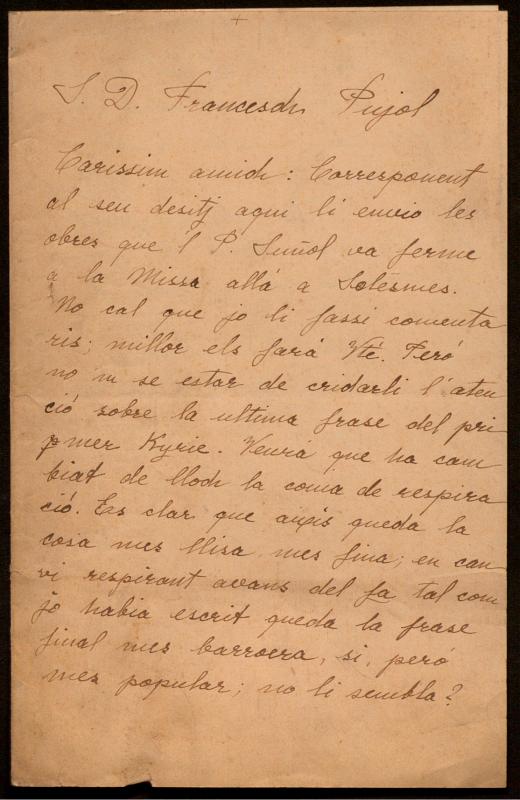 +
S. D. Francesch Pujol
Carissim amich: Corresponent
al seu desitj aqui li envio les
obres que 'l P. Suñol va ferme
a la Missa allá a Solésmes.
No cal que jo li fassi comenta
ris; millor els fará Vté. Peró
no m se estar de cridarli l'aten
ció sobre la ultima frase del pri
mer Kyrie. Veurá que ha cam
biat de lloch la coma de respira
ció. Es clar que aixis queda la
cosa mes llisa, mes fina; en can
vi respirant avans del fa tal com
jo habia escrit queda la frase
final mes barroera, si, peró
mes popular; no li sembla?